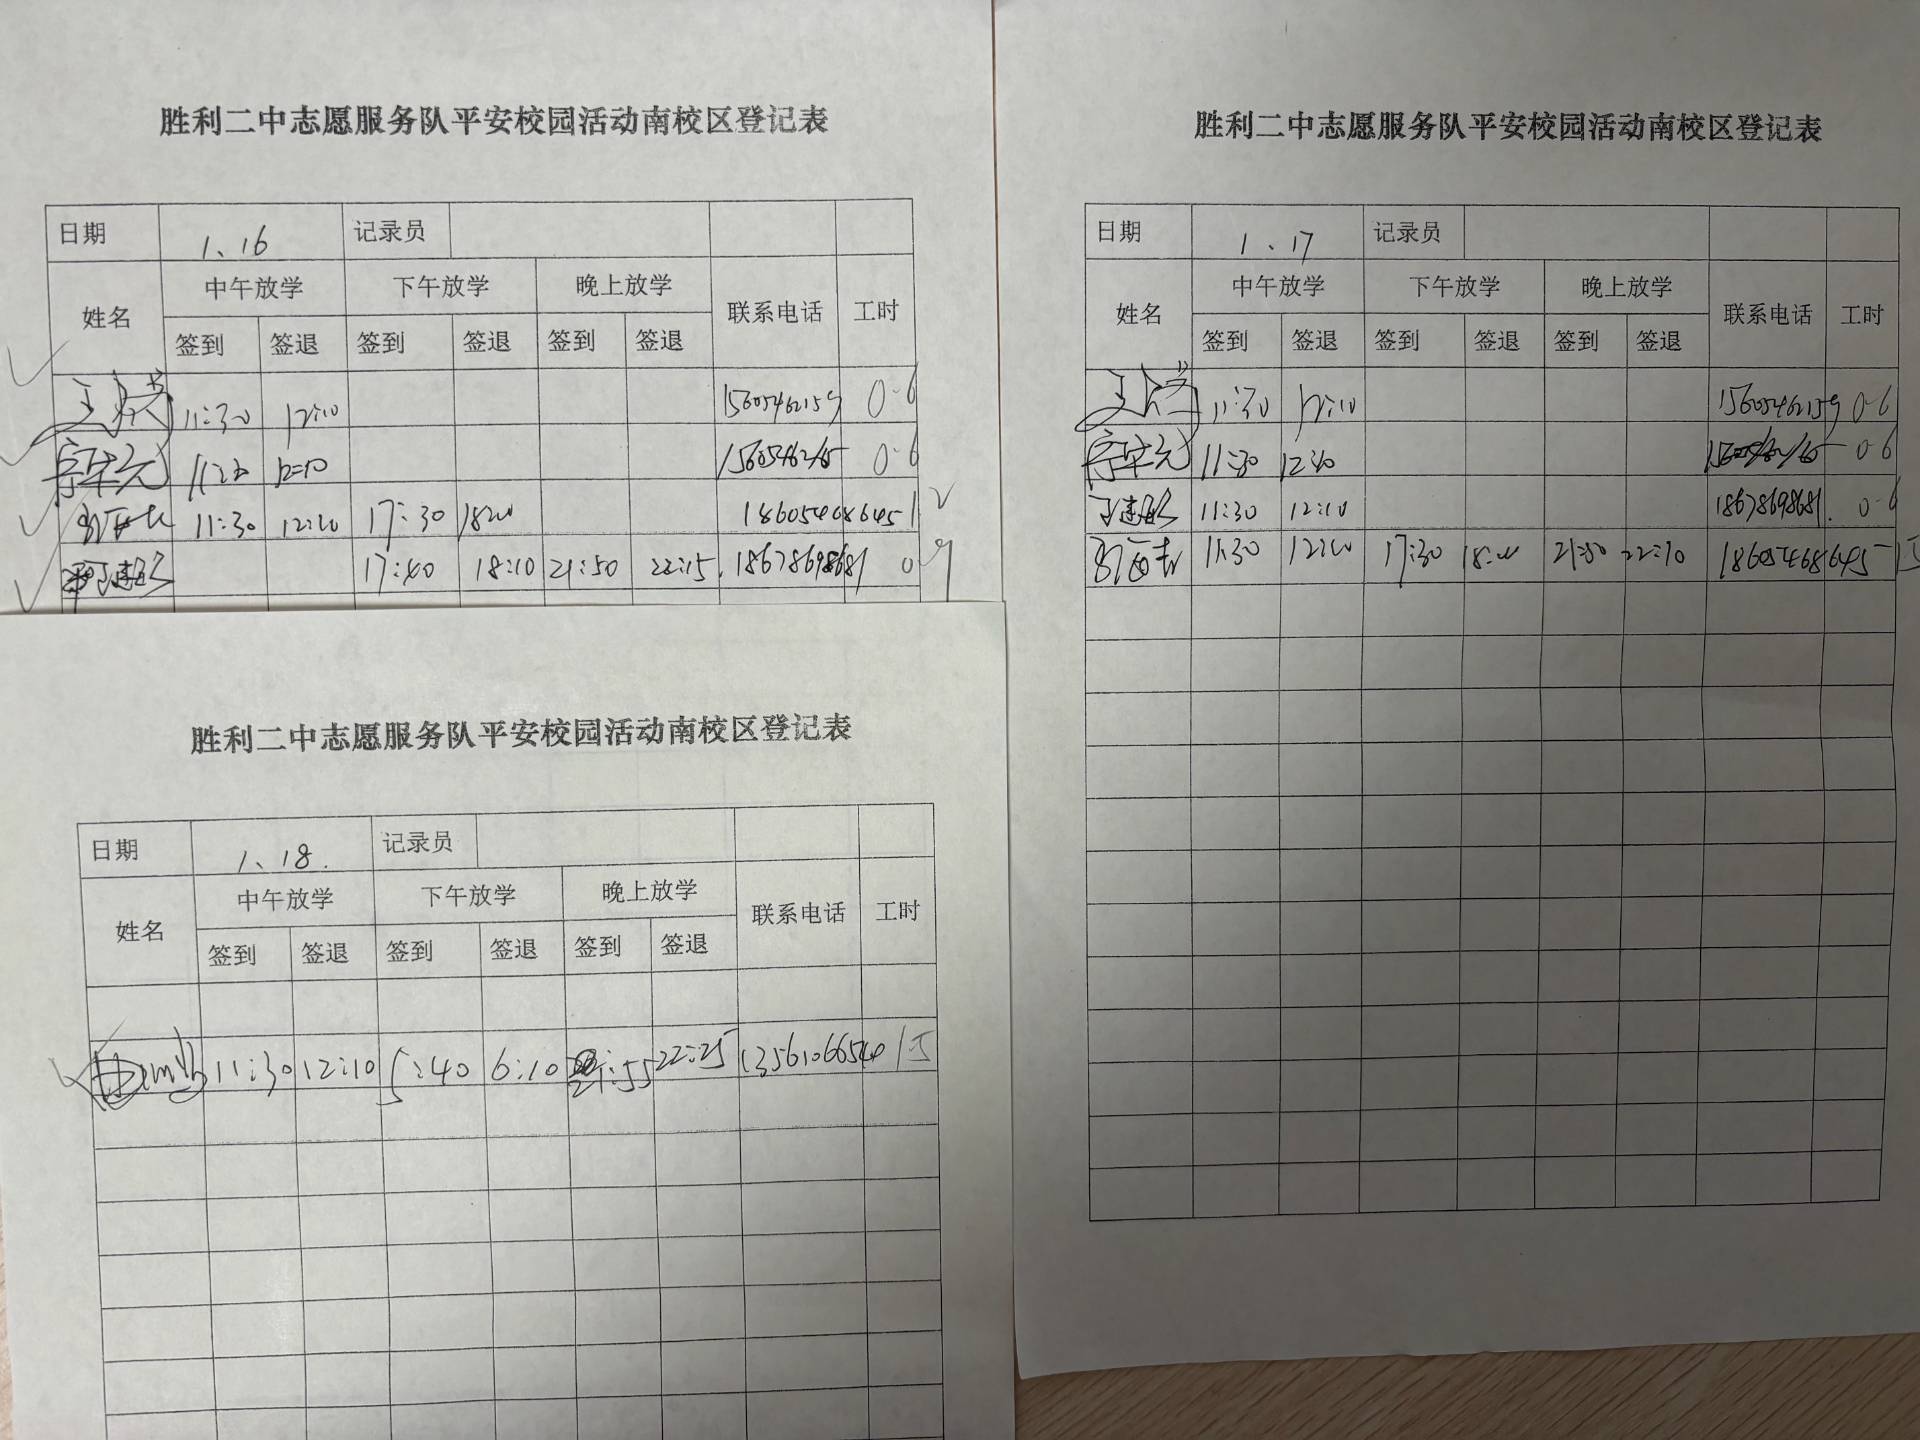 胜利二中志愿服务队平安校园活动南校区登记表
日期 1、16 记录员
姓名 中午放学 下午放学 晚上放学 联系电话 工时
签到 签退 签到 签退 签到 签退
11:30 12:10 15605462159 0.6
0.6
11:30 17:30 18605468645 1
17:40 18:10 21:50 22:15 18678698681 0.9
胜利二中志愿服务队平安校园活动南校区登记表
日期 1、17 记录员
姓名 中午放学 下午放学 晚上放学 联系电话 工时
签到 签退 签到 签退 签到 签退
11:30 12:10 15605462159 0.6
11:30 0.6
11:30 12:10 18678698681 0.6
11:30 17:30 21:50 22:10 18605468645
胜利二中志愿服务队平安校园活动南校区登记表
日期 1、18.  记录员
姓名 中午放学 下午放学 晚上放学 联系电话 工时
签到 签退 签到 签退 签到 签退
11:30 12:10 5:40 6:10 21:55 22:25 13561066540